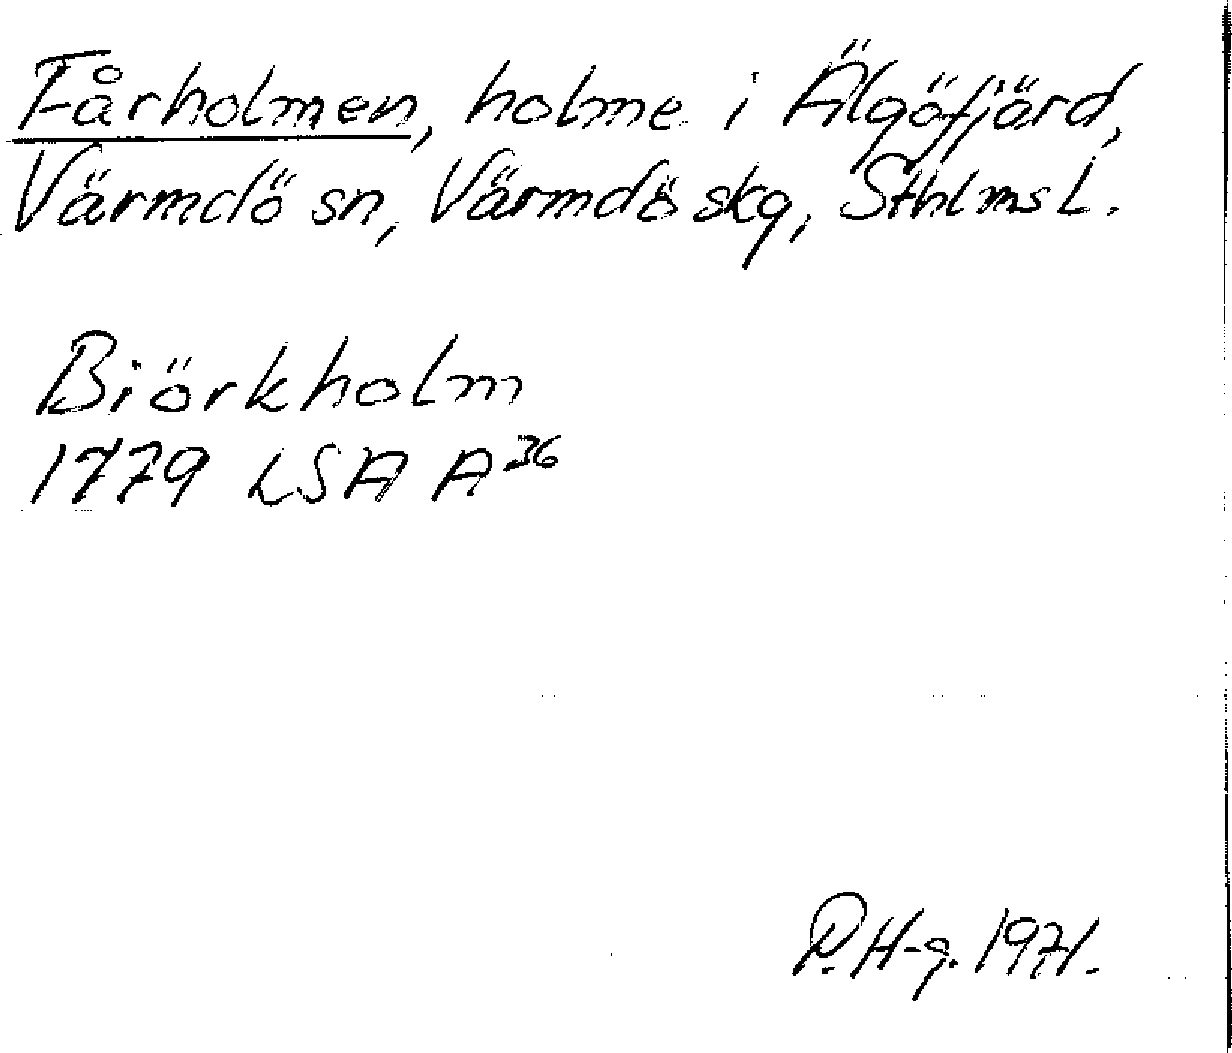 Fårholmen, holme i Älgöfjärd,
Värmdö sn, Värmdö skg, Sthlms L.
Biörkholm
1779 LSA A 36
P. H-g. 1971.